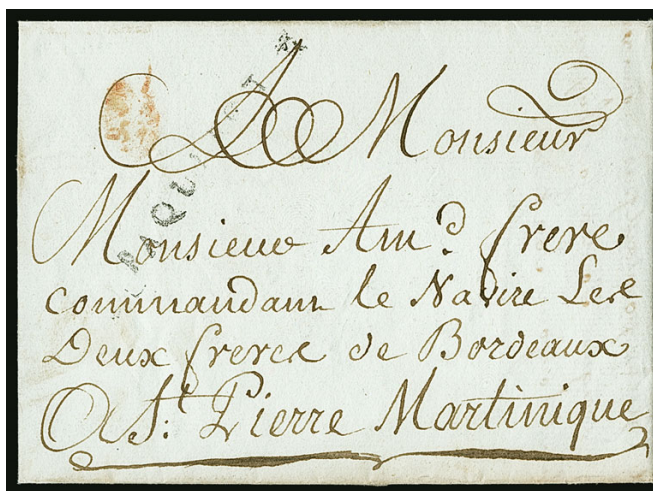 A Monsieur
Monsieur Am.d frere
commandant le Navire Les
Deux freres de Bordeaux
A St. Pierre Martinique